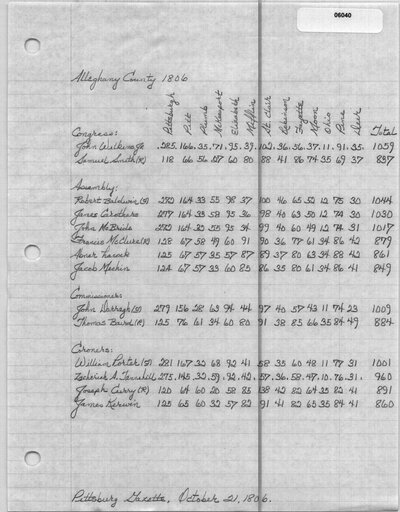 06040
Alleghany County 1806
Pittsburgh Pitt Plumb McKeesport Elizabeth Mifflin St. Clair Robinson Fayette Moon Ohio Pine Deer Total
Congress:
John Wilkins Jr. 285. 166. 35. 71. 95. 39. 102. 36. 36. 37. 11. 91. 35. 1059
Samuel Smith (R) 118 66 56 27 60 80 88 41 86 74 35 69 37 837
Assembly:
Robert Baldwin (F) 282 164 33 55 98 37 100 40 65 52 12 75 30 1044
James Carothers 277 164 33 58 95 36 98 40 63 50 12 74 30 1030
John McBride 282 164 32 55 95 34 99 40 60 49 12 74 31 1017
Francis McClure (R) 128 67 58 49 60 91 90 36 77 61 34 86 42 879
Abner Lacock 125 67 57 35 57 87 89 37 80 63 34 88 42 861
Jacob Mechlin 124 67 57 33 60 85 86 35 80 61 34 86 41 849
Commissioners:
John Darragh (F) 279 156 28 63 94 44 97 40 57 43 11 74 23 1009
Thomas Baird (R) 125 76 61 34 60 80 91 38 85 66 35 84 49 884
Coroners:
William Porter (F) 281 167 32 68 92 41 58 35 60 48 11 77 31 1001
Zachariah A. Tannehill 275. 145. 32. 59. 92. 42. 57. 36. 58. 47. 10. 76. 31. 960
Joseph Curry (R) 120 64 60 20 58 85 138 42 82 64 35 82 41 891
James Kerwin 125 65 60 32 57 82 91 41 82 65 35 84 41 860
Pittsburg Gazette, October 21, 1806.